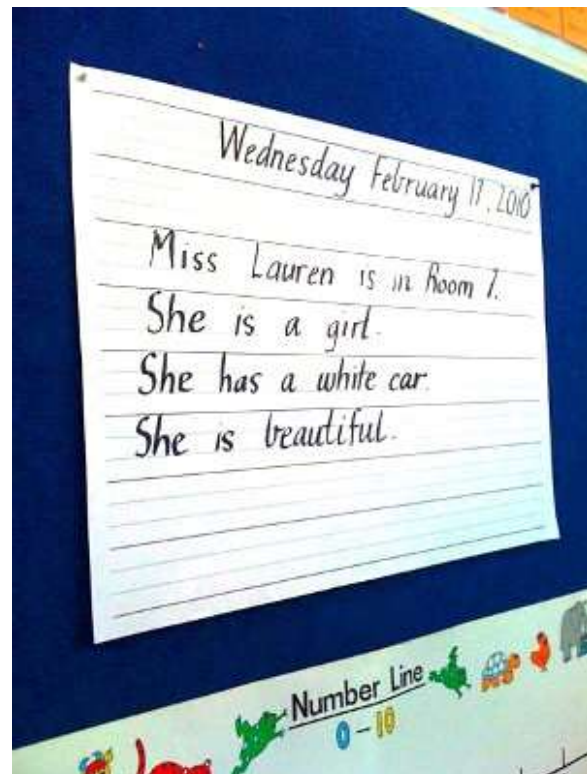 Wednesday February 17, 2010
Miss Lauren is in Room 7.
She is a girl.
She has a white car.
She is beautiful.
Number Line
0-10